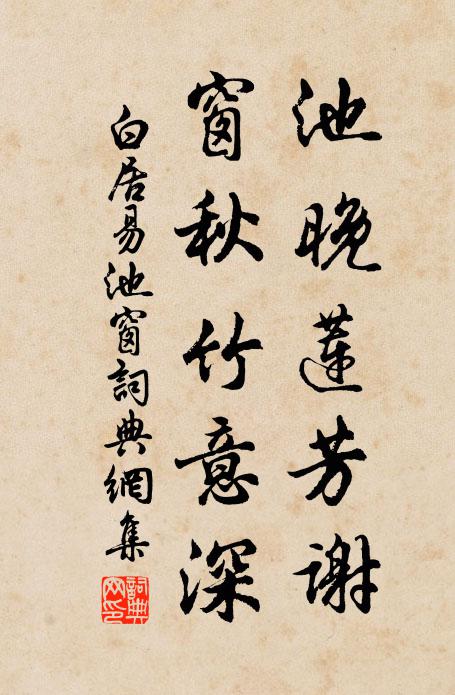 池晚蓮芳謝
窗秋竹意深
白居易池窗詞典網集
詞典网印